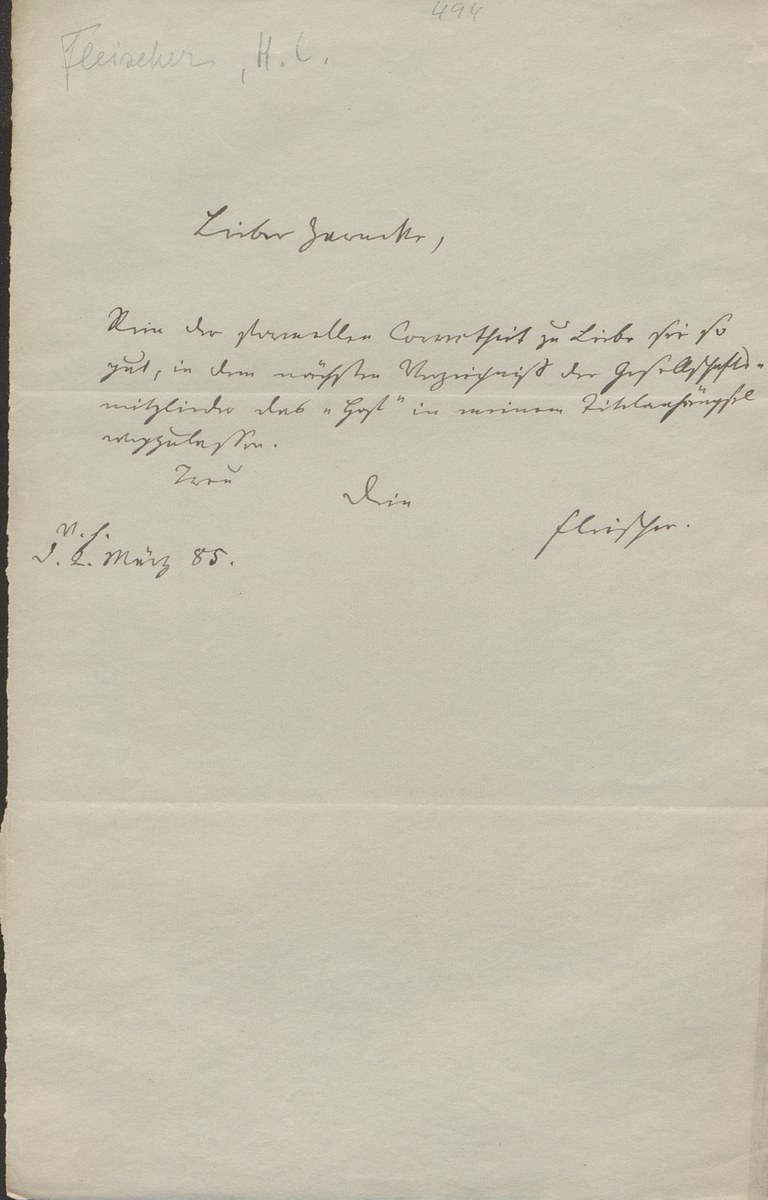 494
Fleischer, H. L.
Lieber Zarncke,
Nur der formellen Correctheit zu Liebe sei so
gut, in dem nächsten Verzeichniß der Gesellschafts-
mitglieder das „Hof“ in meinem Titelanhängsel
wegzulassen.
Treu
Dein
Fleischer.
V. H.
d. 2. März 85.